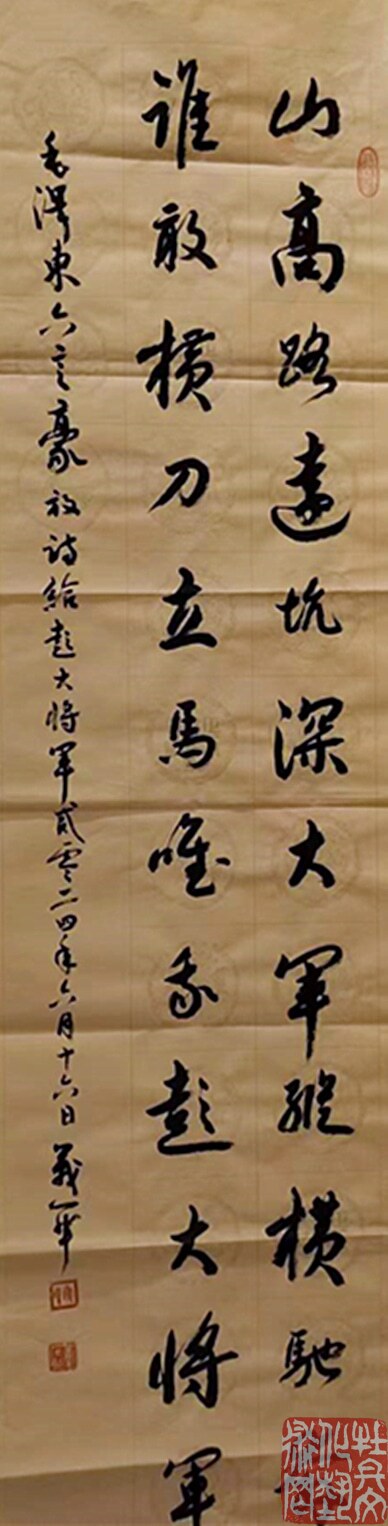 山高路遠坑深大軍縱橫馳
誰敢橫刀立馬唯我彭大將軍
毛澤東六言豪放詩給彭大將軍貳零二四年六月十六日義華
牡丹文化藝術